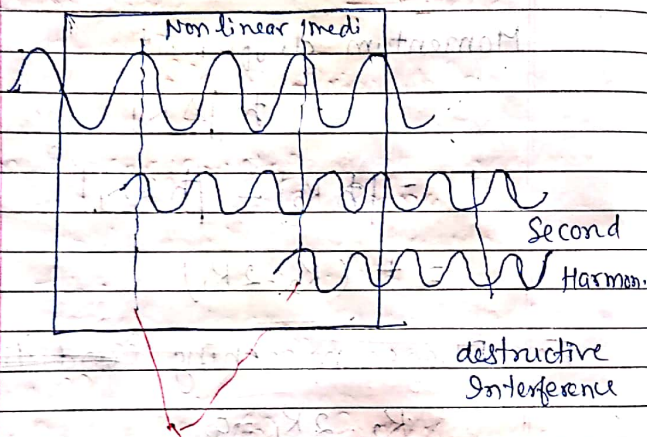 Nonlinear medi
Second
Harmon.
destructive
Interference